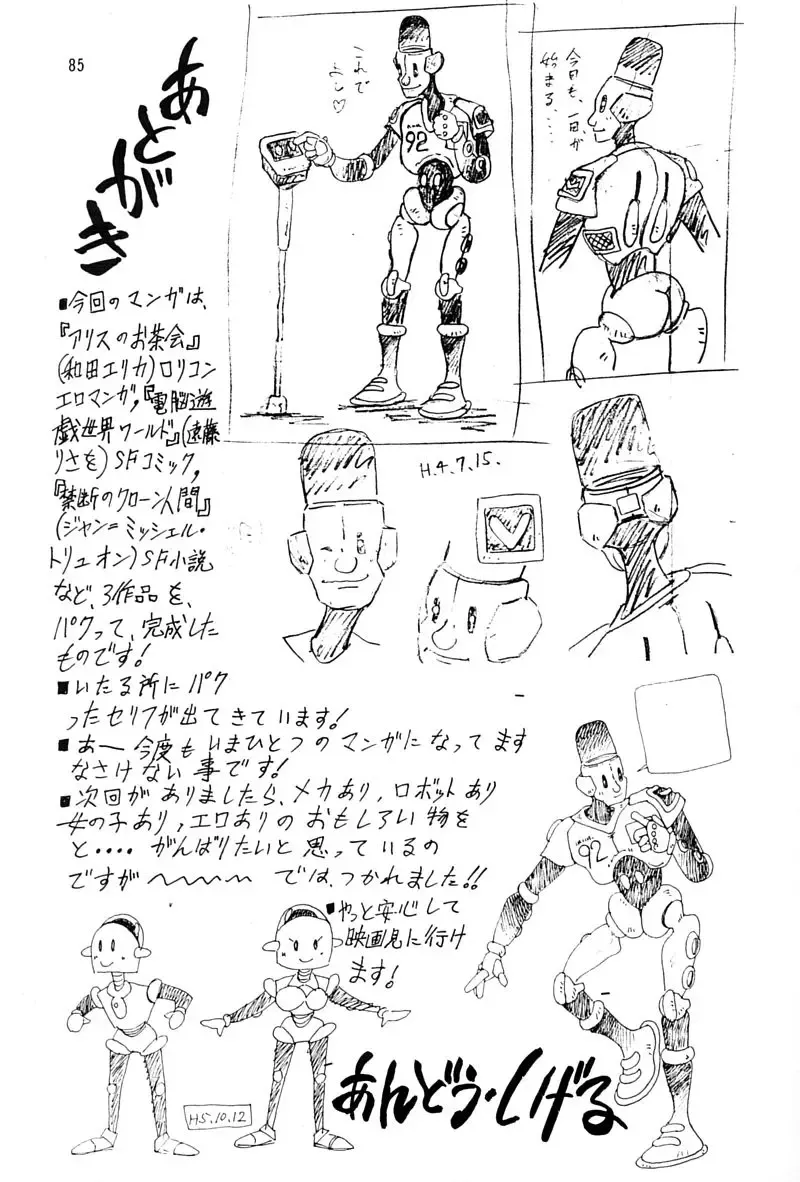 85
あとがき
これで
よし♡
今日も、一日が
始まる、・・・・
■今回のマンガは、
『アリスのお茶会』
(和田エリカ)ロリコン
エロマンガ,『電脳遊
戯世界ワールド』(遠藤
りさを)SFコミック,
『禁断のクローン人間』
(ジャン=ミッシェル・
トリュオン)SF小説
など、3作品を、
パクって、完成した
ものです!
■いたる所にパク
ったセリフが出てきています!
■あー今度もいまひとつのマンガになってます
なさけない事です!
■次回がありましたら、メカあり,ロボットあり
女の子あり,エロありのおもしろい物を
と・・・・がんばりたいと思っているの
ですが〜〜〜〜では、つかれました!!
■やっと安心して
映画見に行け
ます!
H.4.7.15.
92
92
H5.10.12
あんどう・しげる